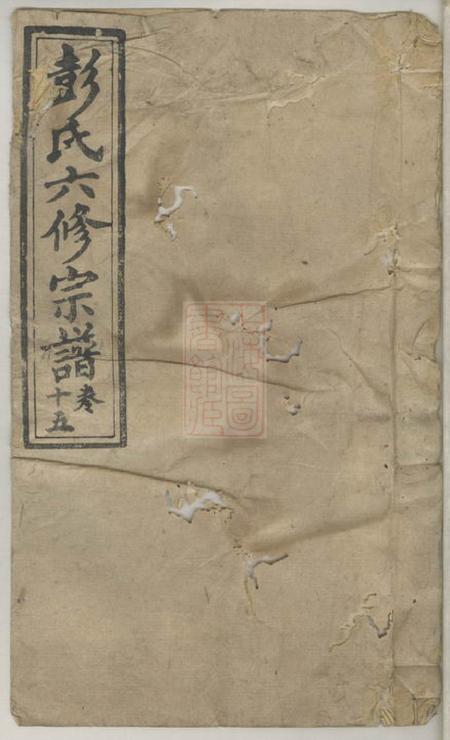 彭氏六修宗譜
卷十五